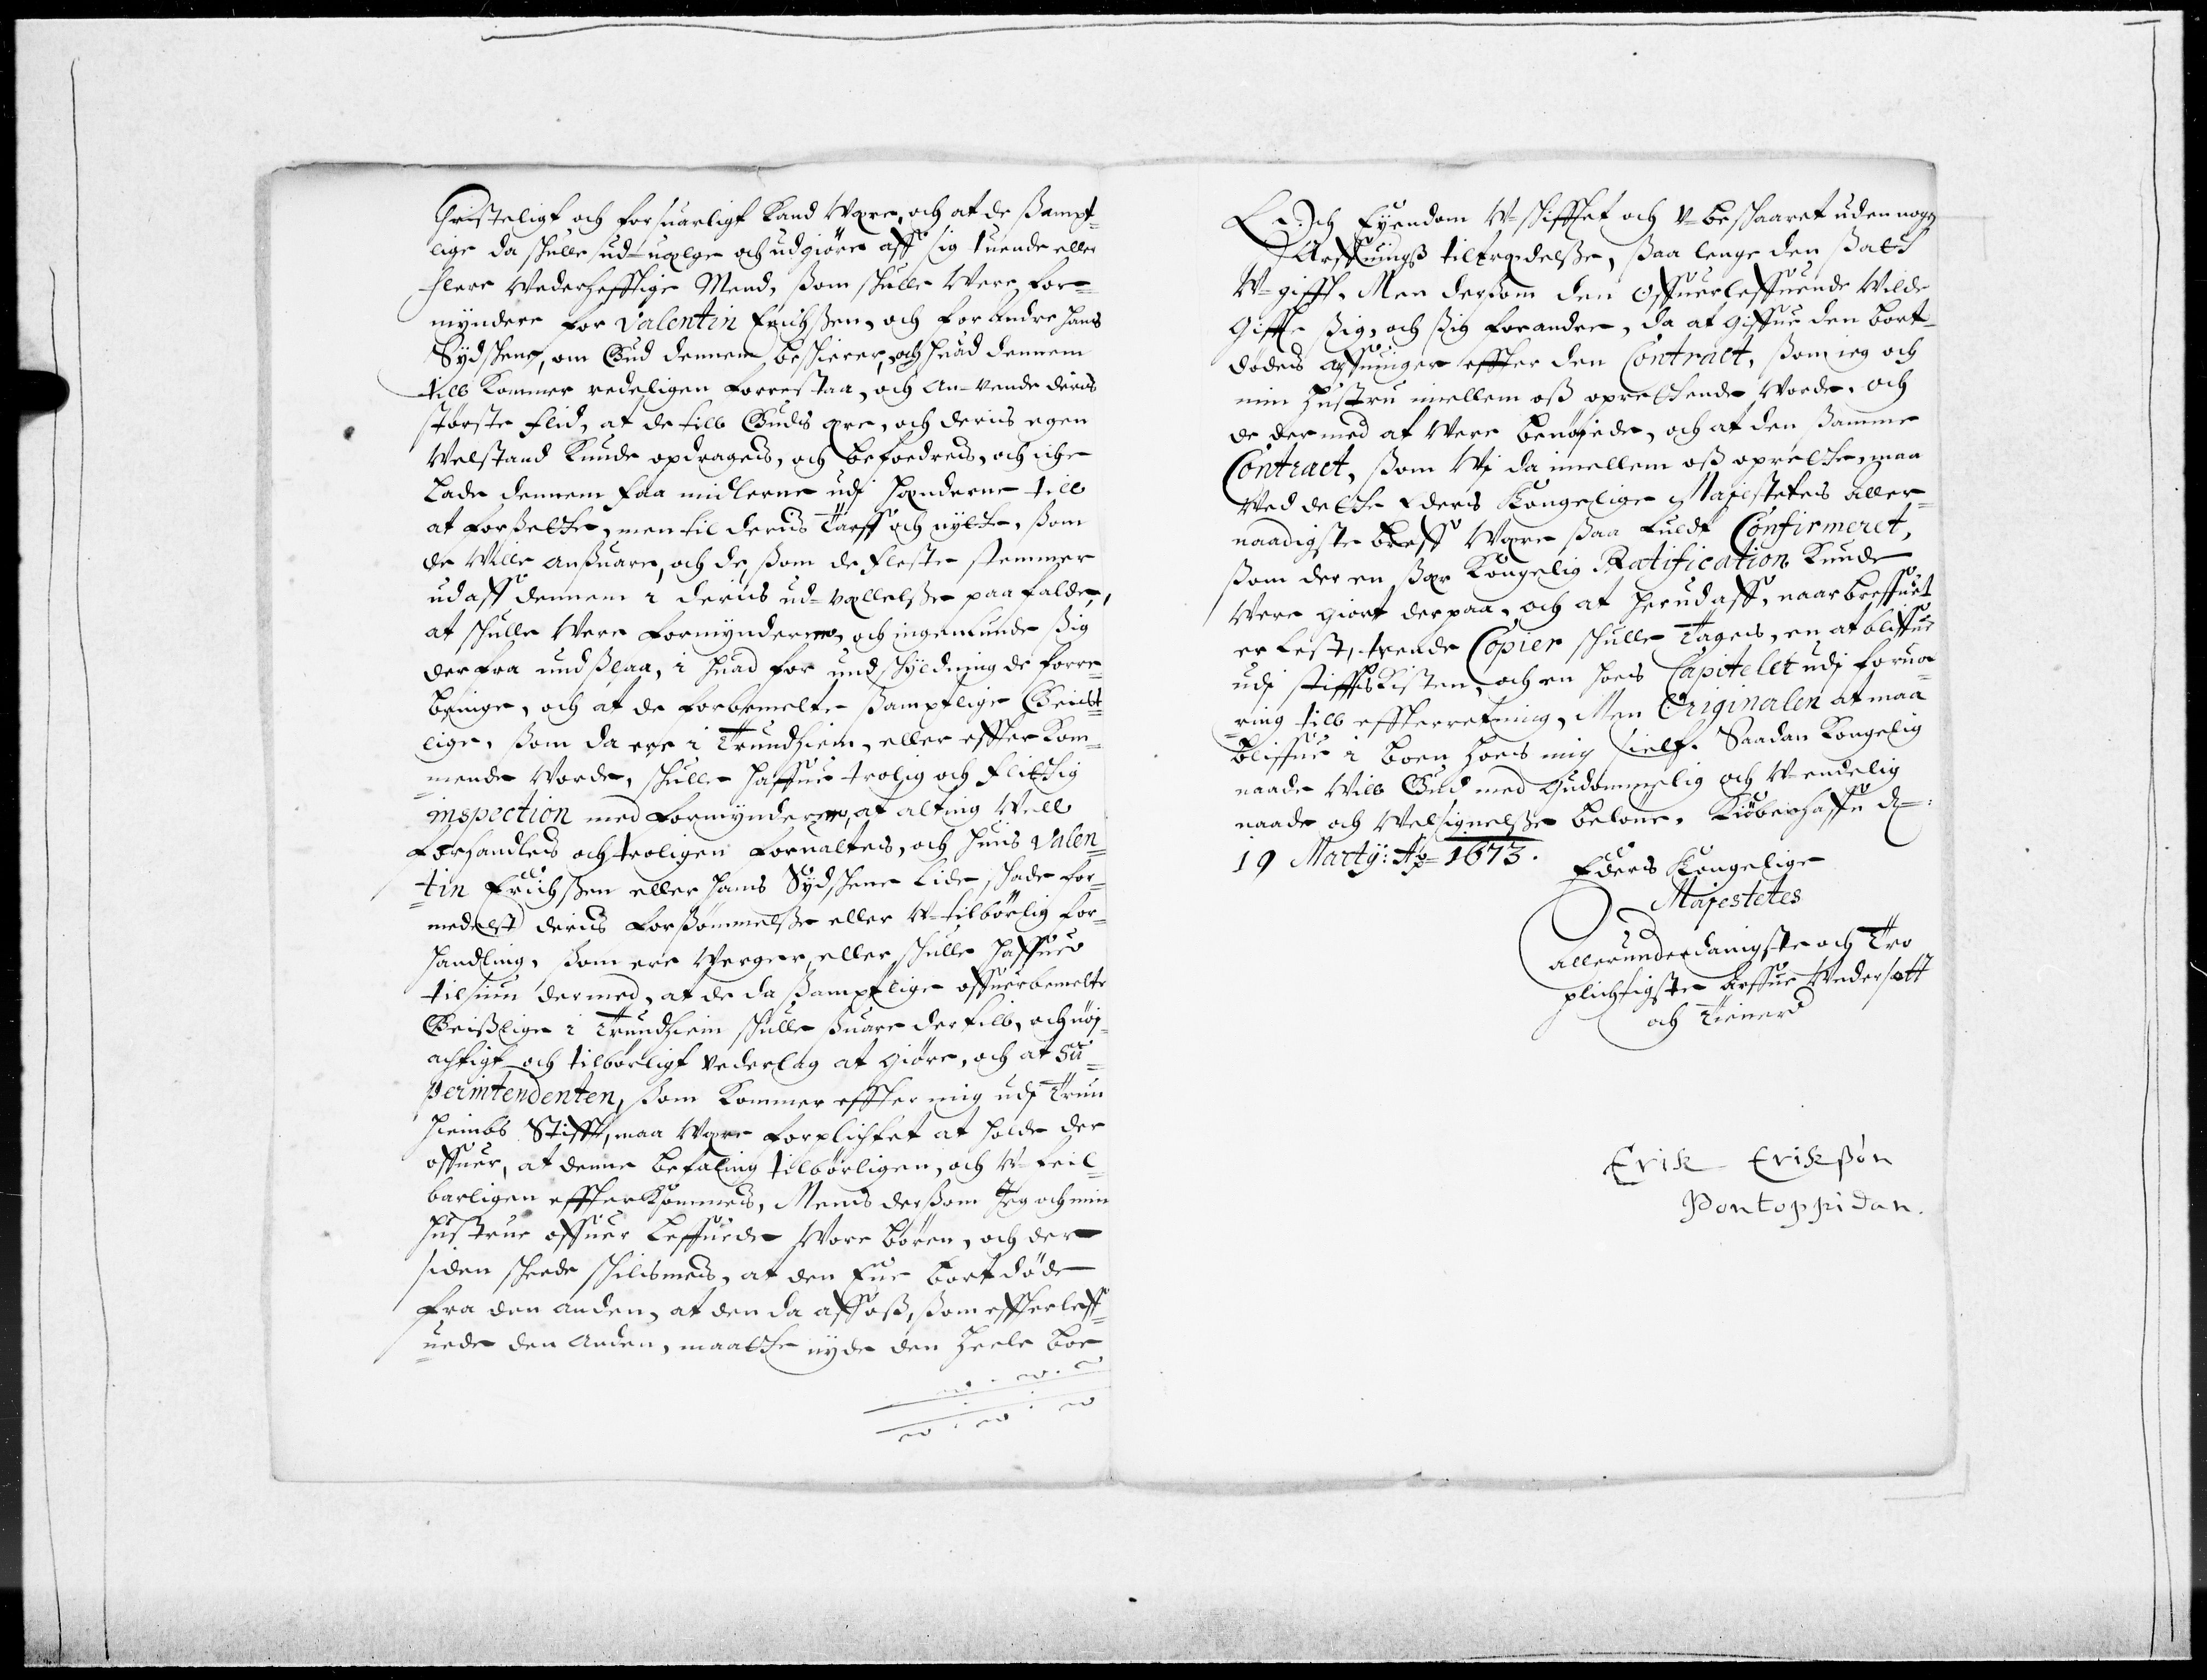 Christeligt och forsuarligt kand være, och at de sampt=
lige da schulle ud-uælge och udgiøre aff sig tuende eller
flere vederhefftige Mend, som schulle vere for=
myndere for Valentin Erichssen, och for andre hans
Sydschene, om Gud dennem beschierer, och huad dennem
till kommer redeligen forrestaa, och an-vende deris
største flid, at de till Guds ære, och deris egen
velstand kunde opdrages, och befordres, och iche
lade dennem faa midlerne udj hænderne till
at forsette, men til deris Tarff och nytte, som
de ville ansuare, och de, som de fleste stemmer
udaff dennem i deris ud-vællelsse paa falder,
at schulle vere formyndere, och ingenlunde sig
derfra undslaa, i huad for undschyldning de forre=
bringe, och at de forbemelte samptlige Geist=
lige, som da ere i Trundhiem, eller effter kom=
mende vorde, schulle haffue trolig och flittig
inspection med formyndere, at alting vell
forhandles och troligen forualtes, och huis Valen=
tin Erichssen eller hans Sydschene lide schade for=
medelst deris forsømmelsse eller U-tilbørlig for=
handling, som ere verger, eller schulle haffue
tilsiun dermed, at de da samptlige offuerbemelte
Geistlige i Trundhiem schulle suare der till, och nøj=
achtigt och tilbørligt vederlag at giøre, och at Su=
perintendenten, som kommer effter mig udj Trun
hiembs Stifft, maa være forplichtet at holde der
offuer, at denne befaling tilbørligen, och U-feil=
barligen effterkommes, Mens dersom Jeg och min
hustrue offuer leffuede vore børen, och der
siden scheede schilsmes, at den Eene bort døde
fra den anden, at den da aff oss, som effterleff=
uede den anden, maatte nyde den heele boe
och Eyendom U-schifftet och U-beschaaret uden nogen
Arffuings tiltrædelsse, saa lenge den sad
U-gifft. Men dersom den Offuerleffuende vilde
Giffte sig, och sig forandre, da at giffue den bort=
dødes arffuinger effter den Contract, som ieg och
min hustru imellem oss oprettende vorde, och
de dermed at vere benøjede, och at den samme
Contract, som vj da imellem oss oprette, maa
ved dette Eders Kongelige Majestetes aller=
naadigste breff være saa fuldt Confirmeret,
som der en sær Kongelig Ratification kunde
vere giort derpaa, och at herudaff, naar breffuet
er lest, tvende Copier schulle tages, en at bliffue
udj stifftskisten, och en hoes Capitelet udj forua=
ring till effterretning, Men Originalen at maa
bliffue i boen hoes mig sielf. Saadan Kongelig
naade vill Gud med Gudommelig och U-endelig
naade och velsignelsse belønne. Kiøbenhaffn d=
19 Martij: Ao= 1673.
Eders Kongelige
Majestetes
allerunderdanigste och Tro
plichtigste arffue Undersatt
och Tiener
Erik Erikssøn
Pontoppidan.